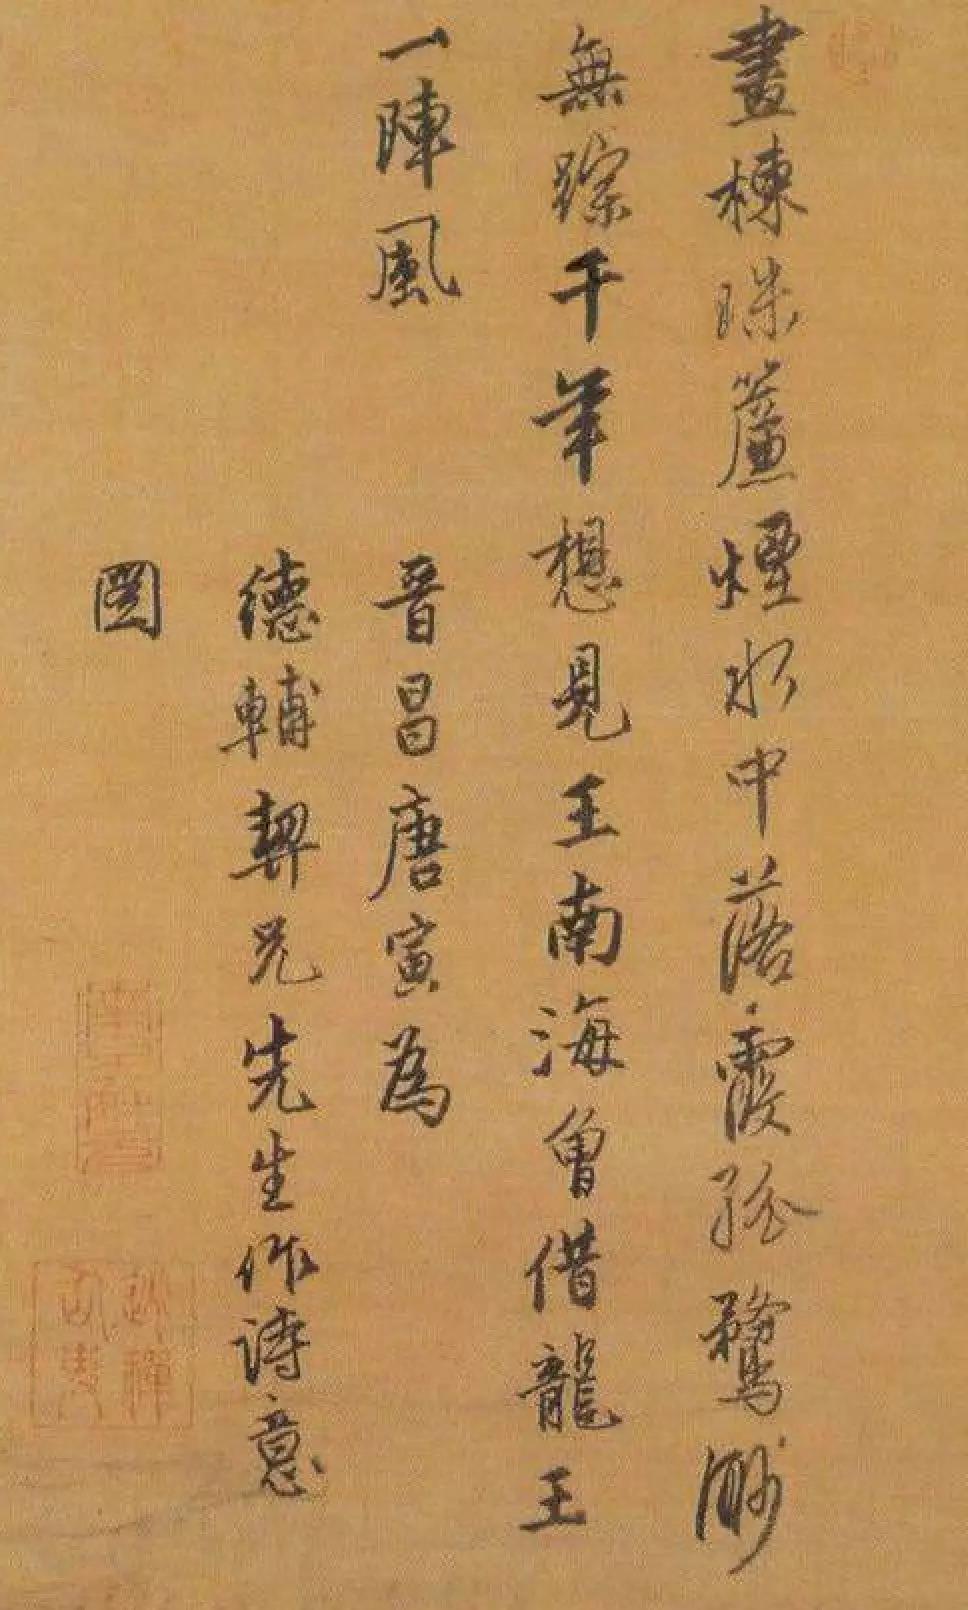 畫棟珠簾煙水中落霞孤鶩渺
無踪千年想見王南海曾借龍王
一陣風
晉昌唐寅為
德輔契兄先生作詩意
圖